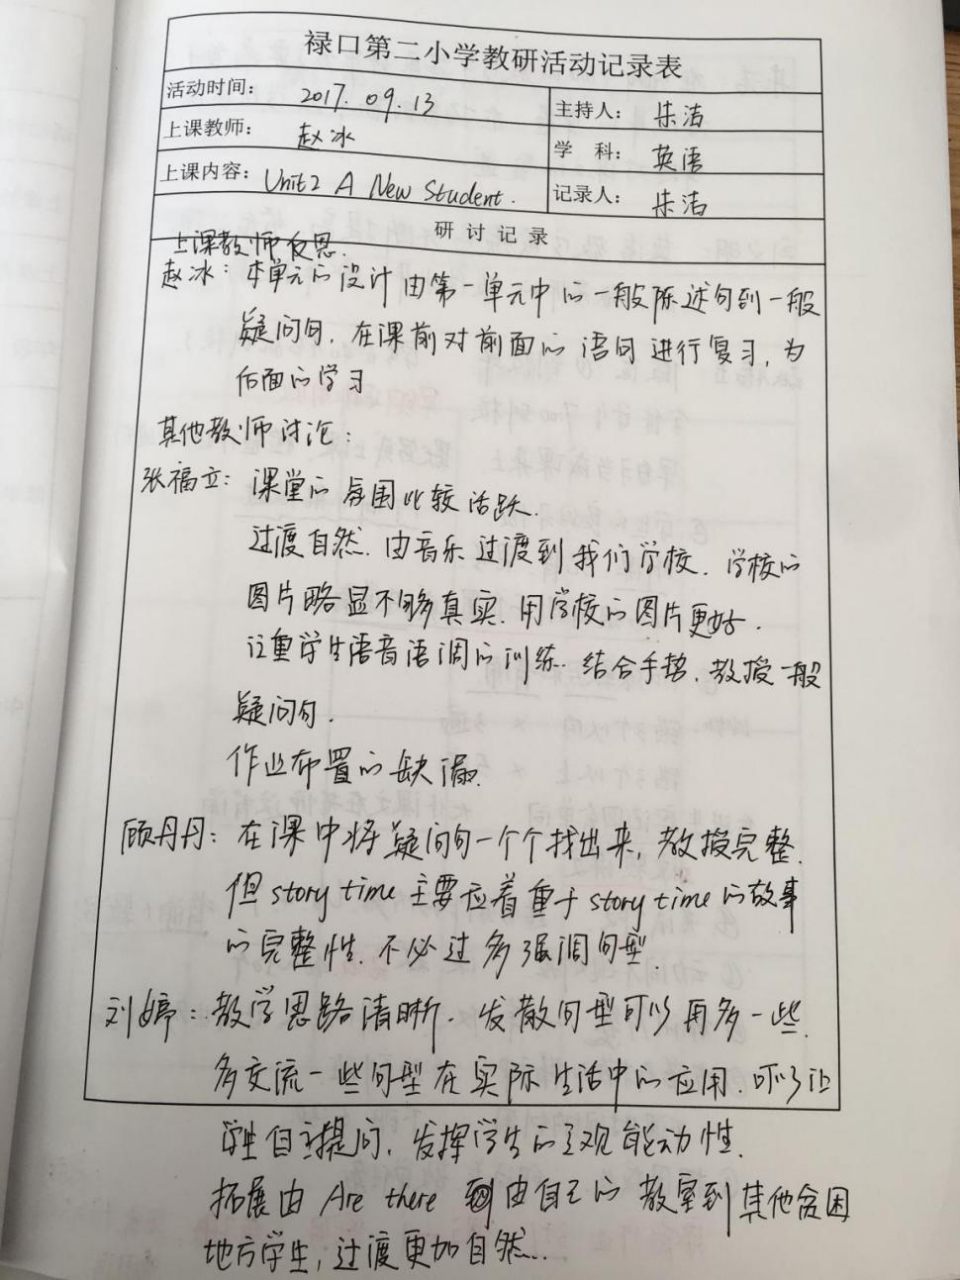 禄口第二小学教研活动记录表
活动时间： 2017.09.13 主持人： 朱洁
上课教师： 赵冰 学 科： 英语
上课内容： Unit2 A New Student. 记录人： 朱洁
研 讨 记 录
上课教师反思.
赵冰：本单元的设计由第一单元中的一般陈述句到一般
疑问句.在课前对前面的语句进行复习,为
后面的学习
其他教师讨论：
张福立：课堂的氛围比较活跃.
过渡自然.由音乐过渡到我们学校.学校的
图片略显不够真实.用学校的图片更好.
注重学生语音语调的训练.结合手势.教授一般
疑问句.
作业布置的缺漏.
顾丹丹：在课中将疑问句一个个找出来,教授完整.
但story time主要应着重于story time的故事
的完整性.不必过多强调句型.
刘婷：教学思路清晰.发散句型可以再多一些.
多交流一些句型在实际生活中的应用.可以让
学生自主提问,发挥学生的主观能动性.
拓展由Are there 到由自己的教室到其他贫困
地方学生,过渡更加自然...